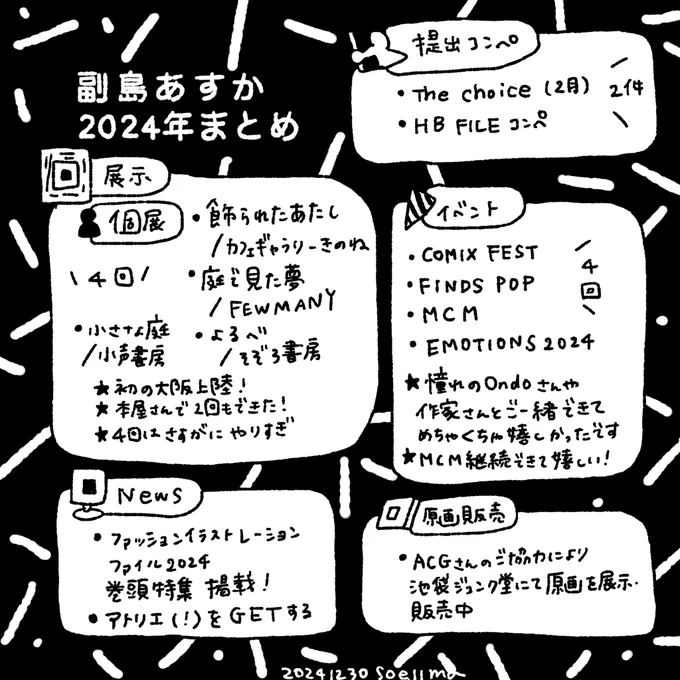 副島あすか
2024年まとめ
提出コンペ
・The choice (2月)
・HB FILE コンペ
2件
展示
個展
\4回/
・飾られたあたし
/カフェギャラリーきのね
・庭で見た夢
/FEWMANY
・小さな庭
/小声書房
・よるべ
/そぞろ書房
★初の大阪上陸!
★本屋さんで2回もできた!
★4回はさすがにやりすぎ
イベント
・COMIX FEST
・FINDS POP
・MCM
・EMOTIONS 2024
4回
★憧れのOndoさんや
作家さんとご一緒できて
めちゃくちゃ嬉しかったです
★MCM継続できて嬉しい!
News
・ファッションイラストレーション
ファイル2024
巻頭特集 掲載!
・アトリエ(!)をGETする
原画販売
・ACGさんのご協力により
池袋ジュンク堂にて原画を展示・
販売中
20241230 Soejima